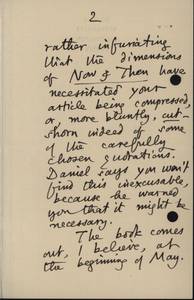 2
rather infuriating
that the dimensions
of Now & Then have
necessitated your
article being compressed,
or, more bluntly, cut-
shorn indeed of some
of the carefully
chosen quotations.
Daniel says you won't
find this inexcusable,
because he warned
you that it might be
necessary.
The book comes
out, I believe, at
the beginning of May.